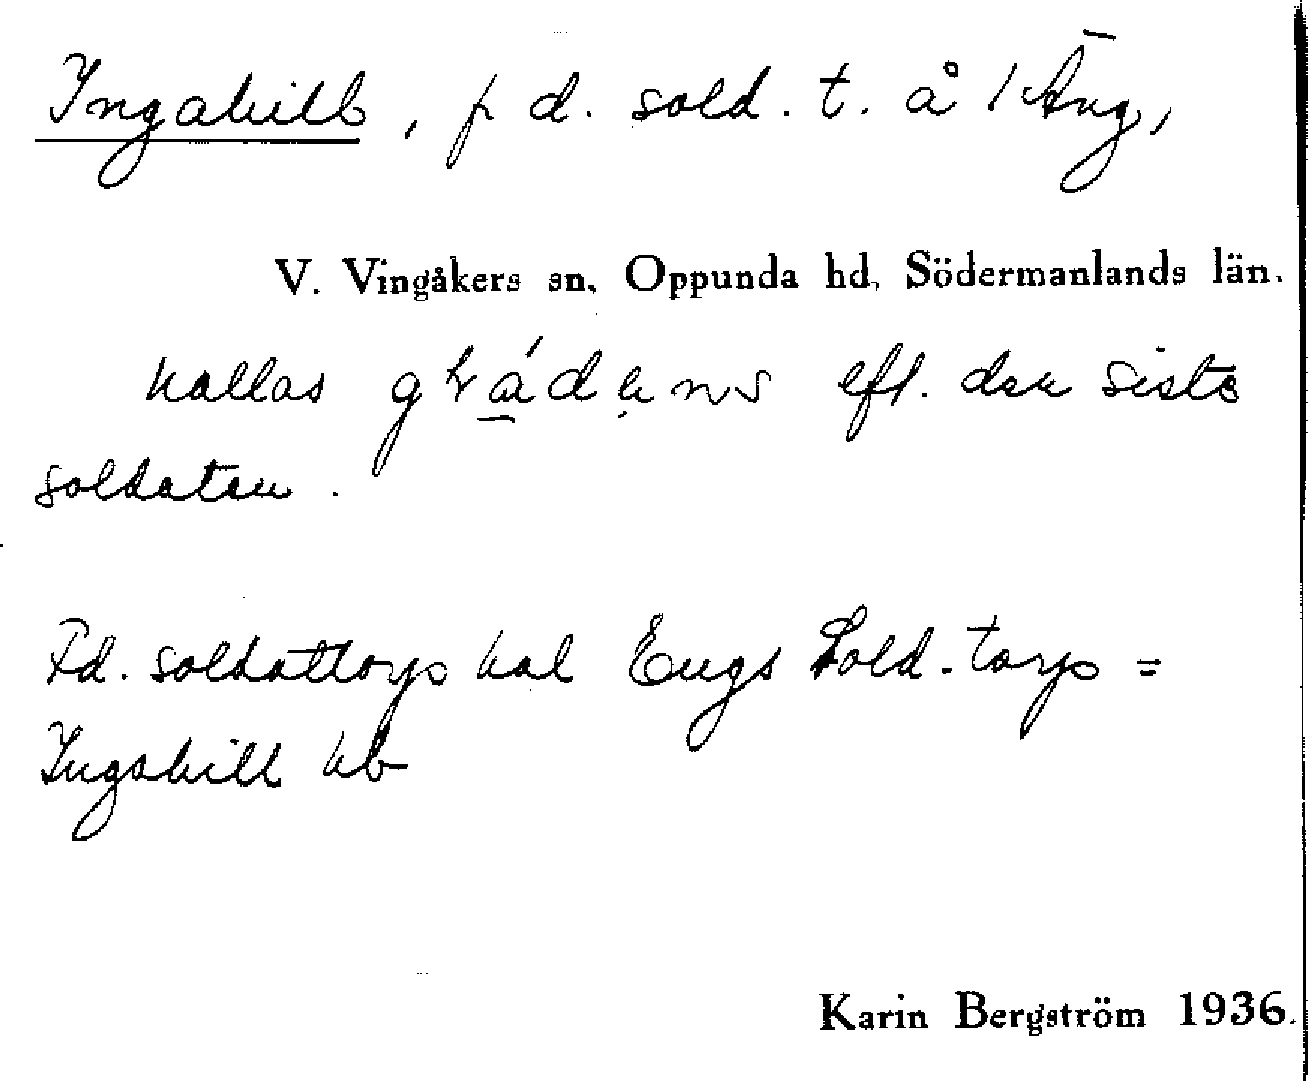 Ingahill, f d. sold. t. å 1 Äng,
V. Vingåkers sn, Oppunda hd, Södermanlands län.
kallas eft. den siste
soldaten.
Fd. soldattorp kal Engs Sold.-torp =
Ingahill hb
Karin Bergström 1936.